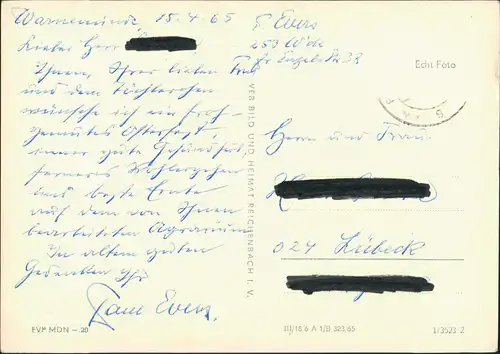 Warnemünde, 15.4.65
Lieber Herr
Ihnen, Ihrer lieben Frau
und dem Töchterchen
wünsche ich ein Froh-
gemutes Osterfest,
immer gute Gesundheit,
ferneres Wohlergehen
und beste Ernte
auf dem von Ihnen
bearbeiteten Agrarium
In altem guten
Gedenken Ihr
Evers.
EVP MDN –.20
VEB BILD UND HEIMAT REICHENBACH I. V.
Evers
253 Wde
Fr Engels Str 32
Echt Foto
Herrn und Frau
024 Lübeck
III/18/6 A 1/B 323/65
1/3523/2